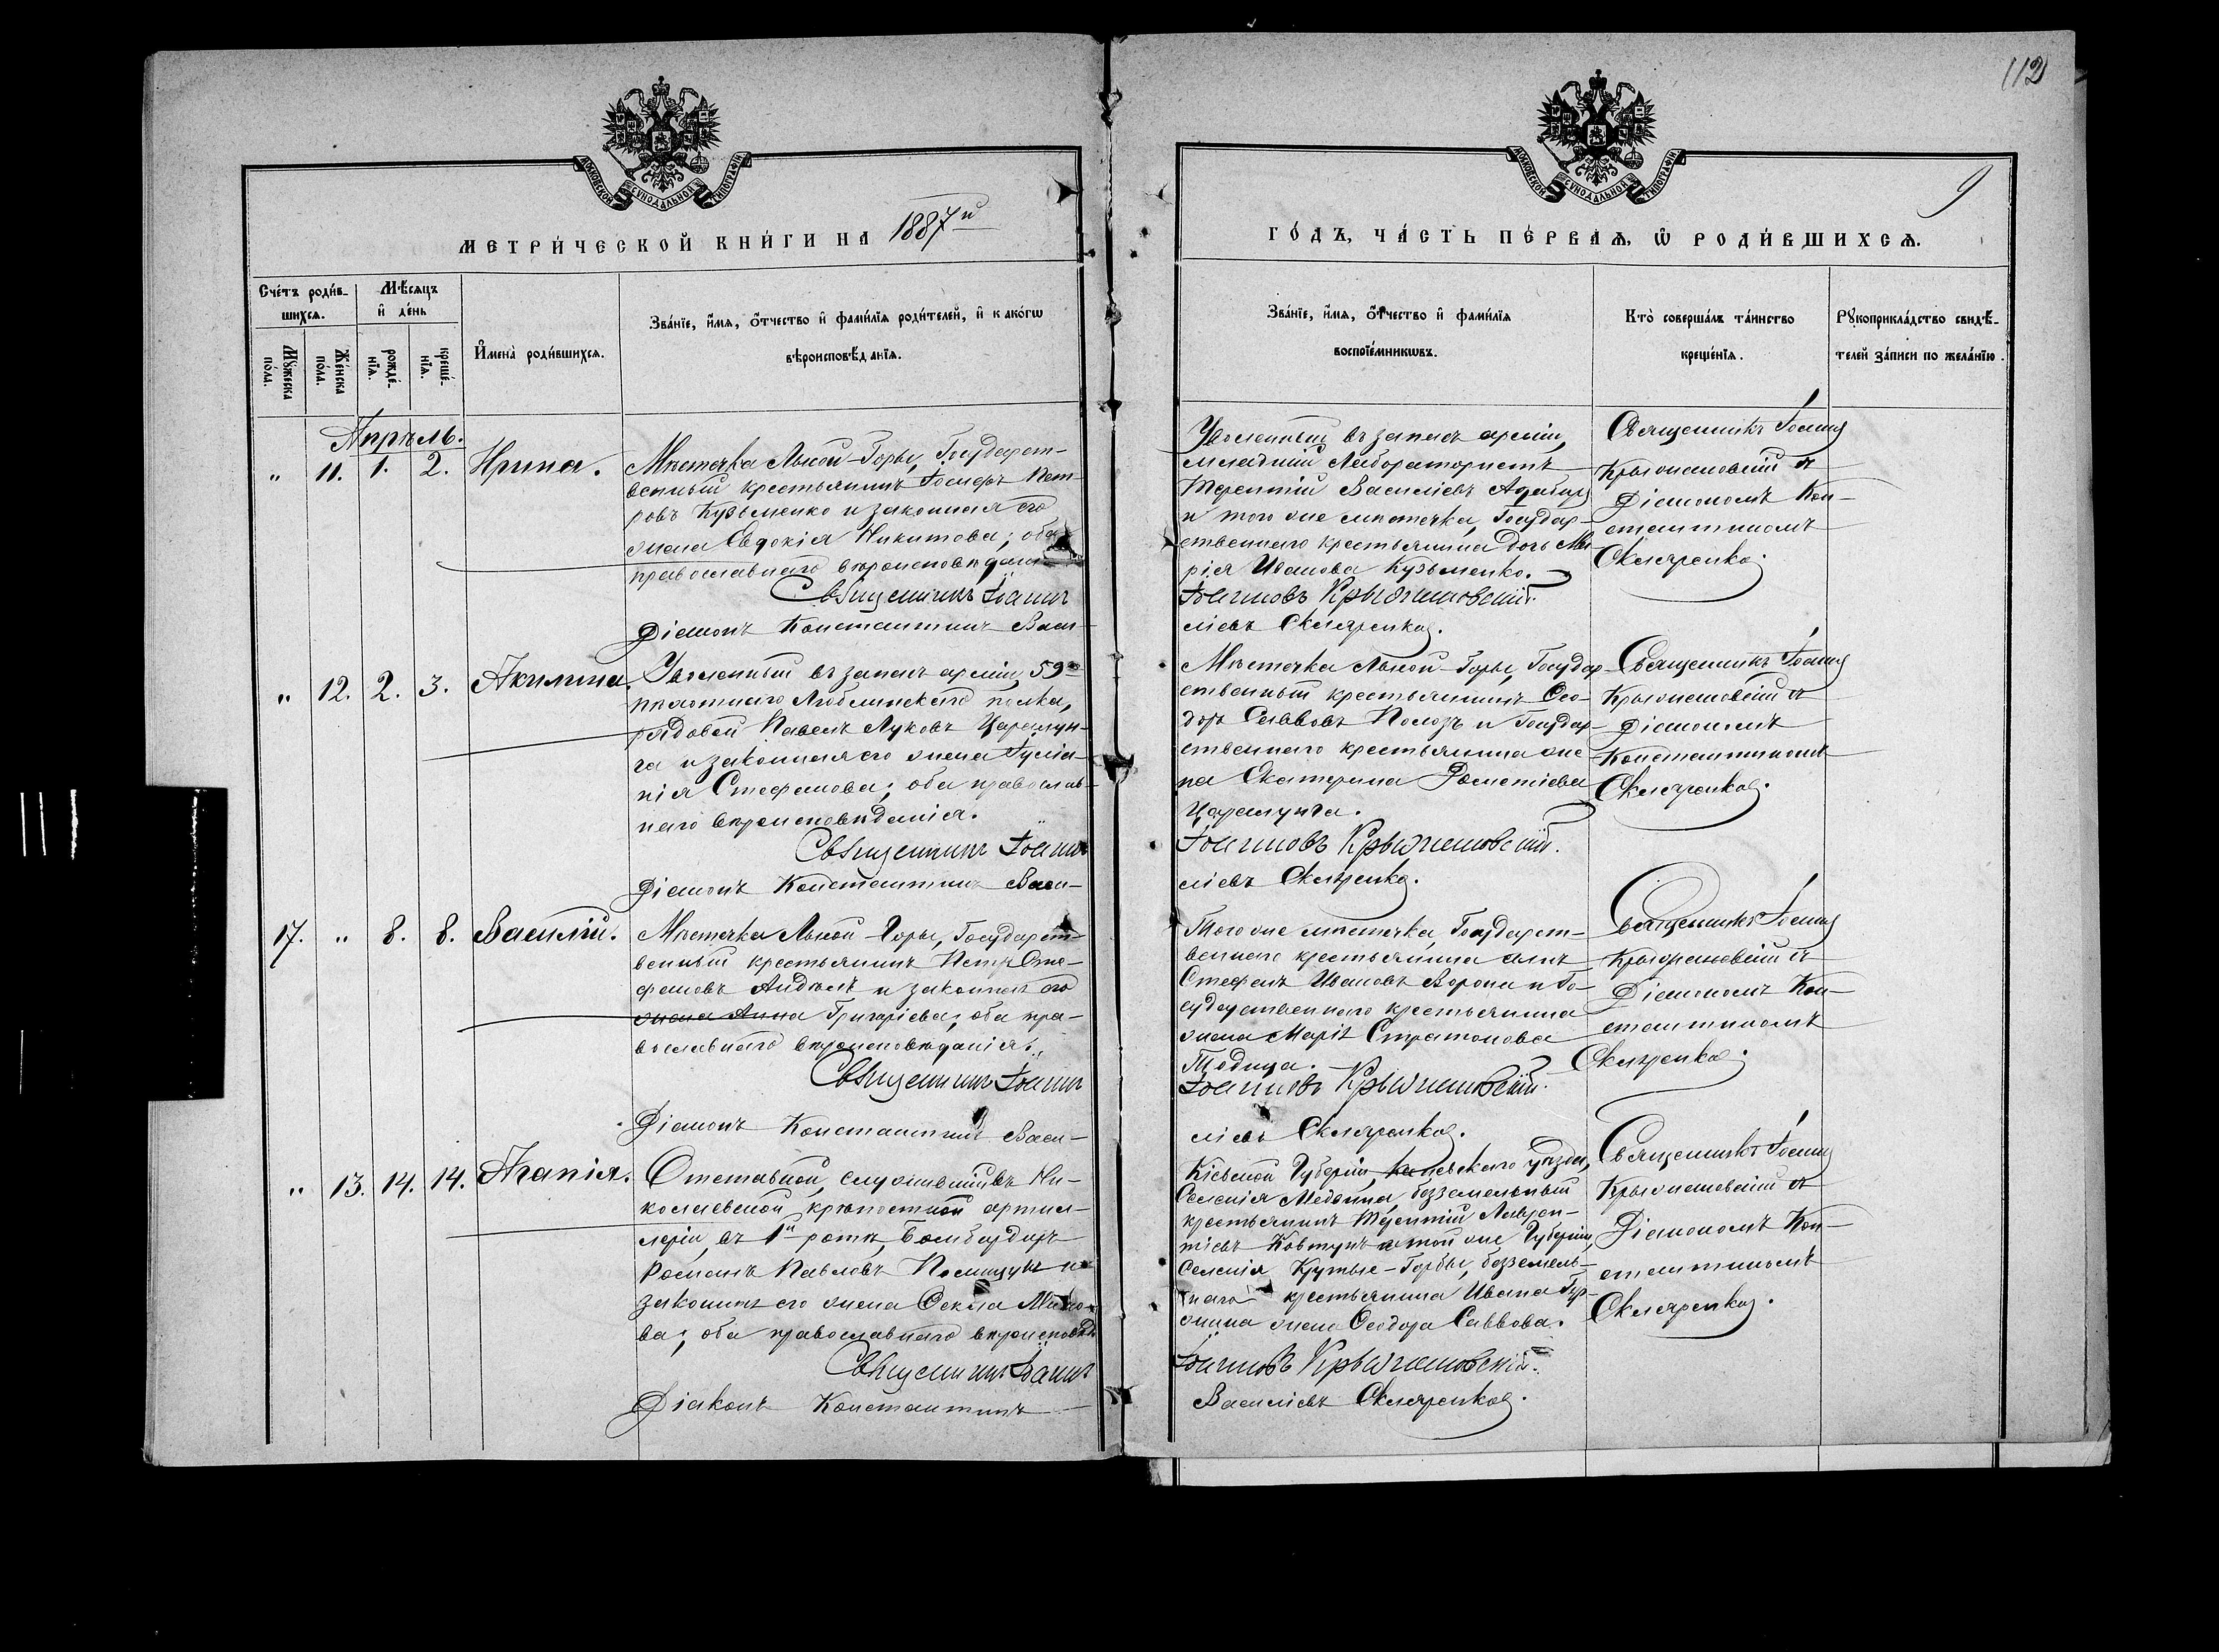 112
9
МОСКОВСКОЙ СѴНОДАЛЬНОЙ ТИПОГРАФІИ
МОСКОВСКОЙ СѴНОДАЛЬНОЙ ТИПОГРАФІИ
МЕТРИ́ЧЕСКОЙ КНИ́ГИ НА 1887й
ГО́ДЪ, ЧА́СТЬ ПЕ́РВАѦ, Ѡ РОДИ́ВШИХСѦ.
Сче́тъ роди́в-
шихсѧ.
Мꙋ́жеска по́ла.
Же́нска по́ла.
Мѣ́сяцъ
и҆ де́нь
рожде́-
нїѧ.
креще́-
нїѧ.
И҆мена̀ роди́вшихсѧ.
Зва́нїе, и҆́мѧ, ѻ҆́тчество и҆ фами́лїѧ роди́телей, и҆ како́гѡ
вѣроисповѣ́данїѧ.
Зва́нїе, и҆́мѧ, ѻ҆́тчество и҆ фами́лїѧ
воспрїе́мникѡвъ.
Кто̀ соверша́лъ та́инство
креще́нїѧ.
Рꙋкоприкла́дство свидѣ́-
телей за́писи по жела́нїю.
Апрѣль.
" 11. 1. 2. Ирина.
Мѣстечка Лысой-Горы, Государст-
венный крестьянинъ Іосифъ Пет-
ровъ Кузьменко и законная его
жена Евдокія Никитова; оба
православнаго вѣроисповѣданія
Священникъ Іоаннъ
Діаконъ Константинъ Васи-
Уволенный въ запасъ арміи,
младшій Лаборатористъ
Терентій Василіевъ
и того же мѣстечка, Государ-
ственнаго крестьянина дочь Ма-
рія Иванова Кузьменко.
Іоанновъ Крыжановскій.
ліевъ Скляренко.
Священникъ Іоаннъ
Крыжановскій съ
Діакономъ Кон-
стантиномъ
Скляренко.
" 12. 2. 3. Акилина.
Уволенный въ запасъ арміи, 59го
пѣхотнаго Люблинскаго полка,
рядовой Павелъ Луковъ Царалун-
га и законная его жена Іуліа-
нія Стефанова; оба православ-
наго вѣроисповѣданія.
Священникъ Іоаннъ
Діаконъ Константинъ Васи-
Мѣстечка Лысой-Горы, Государ-
ственный крестьянинъ Ѳео-
доръ Саввовъ Полозъ и Государ-
ственнаго крестьянина же-
на Екатерина
Царалунга.
Іоанновъ Крыжановскій.
ліевъ Скляренко.
Священникъ Іоаннъ
Крыжановскій съ
Діакономъ
Константиномъ
Скляренко.
17. " 8. 8. Василій.
Мѣстечка Лысой-Горы, Государст-
венный крестьянинъ Петръ Сте-
фановъ и законная его
жена Анна Григоріева; оба пра-
вославнаго вѣроисповѣданія.
Священникъ Іоаннъ
Діаконъ Константинъ Васи-
Того же мѣстечка, Государст-
веннаго крестьянина сынъ
Стефанъ Ивановъ Ворона и Го-
сударственнаго крестьянина
жена Марія Стратонова
Іоанновъ Крыжановскій.
ліевъ Скляренко.
Священникъ Іоаннъ
Крыжановскій съ
Діакономъ Кон-
стантиномъ
Скляренко.
" 13. 14. 14. Агапія.
Отставной, служившій въ Ни-
колаевской крѣпостной артил-
леріи, въ 1й ротѣ, Бомбардиръ
Романъ Павловъ и
законная его жена Ѳекла
ва; оба православнаго вѣроисповѣд.
Священникъ Іоаннъ
Діаконъ Константинъ
Кіевской Губерніи, уѣзда,
Селенія Медвина, безземельный
крестьянинъ Терентій Лаврен-
тіевъ Ковтунъ и той же Губерніи,
Селенія Крутые-Горбы, безземель-
наго крестьянина Ивана
жена Ѳеодора Саввова.
Іоанновъ Крыжановскій.
Василіевъ Скляренко.
Священникъ Іоаннъ
Крыжановскій съ
Діакономъ Кон-
стантиномъ
Скляренко.